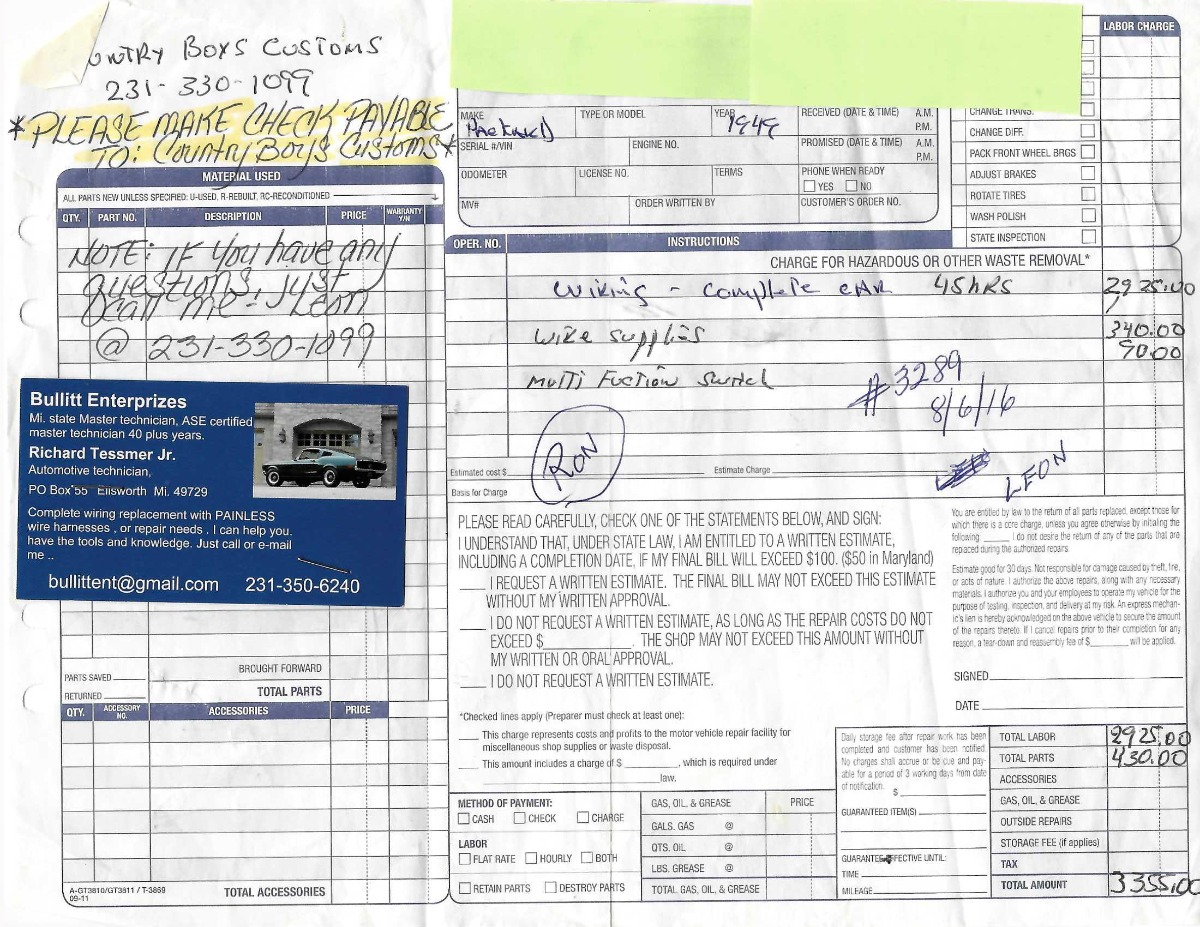 UNTRY BOYS CUSTOMS
231-330-1099
*PLEASE MAKE CHECK PAYABLE
TO: COUNTRY BOYS CUSTOMS*
MATERIAL USED
ALL PARTS NEW UNLESS SPECIFIED: U-USED, R-REBUILT, RC-RECONDITIONED
QTY. PART NO. DESCRIPTION PRICE WARRANTY Y/N
NOTE: IF you have any
questions, just
call me - Leon
@ 231-330-1099
Bullitt Enterprizes
Mi. state Master technician, ASE certified
master technician 40 plus years.
Richard Tessmer Jr.
Automotive technician,
PO Box 55 Ellsworth Mi. 49729
Complete wiring replacement with PAINLESS
wire harnesses , or repair needs , I can help you.
have the tools and knowledge. Just call or e-mail
me ..
bullittent@gmail.com 231-350-6240
BROUGHT FORWARD
PARTS SAVED
TOTAL PARTS
RETURNED
QTY. ACCESSORY NO. ACCESSORIES PRICE
A-GT3810/GT3811 / T-3869
09-11
TOTAL ACCESSORIES
LABOR CHARGE
MAKE Packard TYPE OR MODEL YEAR 1949 RECEIVED (DATE & TIME) A.M. P.M.
SERIAL #/VIN ENGINE NO. PROMISED (DATE & TIME) A.M. P.M.
ODOMETER LICENSE NO. TERMS PHONE WHEN READY
YES NO
MV# ORDER WRITTEN BY CUSTOMER'S ORDER NO.
CHANGE TRANS.
CHANGE DIFF.
PACK FRONT WHEEL BRGS
ADJUST BRAKES
ROTATE TIRES
WASH POLISH
STATE INSPECTION
OPER. NO. INSTRUCTIONS
CHARGE FOR HAZARDOUS OR OTHER WASTE REMOVAL*
Wiring - Complete CAR 45 hRS 2925.00
Wire supplies 340.00
90.00
Multi Fuction Switch
#3289
8/6/16
RON
LEON
Estimated cost $ Estimate Charge
Basis for Charge
PLEASE READ CAREFULLY, CHECK ONE OF THE STATEMENTS BELOW, AND SIGN:
I UNDERSTAND THAT, UNDER STATE LAW, I AM ENTITLED TO A WRITTEN ESTIMATE,
INCLUDING A COMPLETION DATE, IF MY FINAL BILL WILL EXCEED $100. ($50 in Maryland)
I REQUEST A WRITTEN ESTIMATE. THE FINAL BILL MAY NOT EXCEED THIS ESTIMATE
WITHOUT MY WRITTEN APPROVAL.
I DO NOT REQUEST A WRITTEN ESTIMATE, AS LONG AS THE REPAIR COSTS DO NOT
EXCEED $ . THE SHOP MAY NOT EXCEED THIS AMOUNT WITHOUT
MY WRITTEN OR ORAL APPROVAL.
I DO NOT REQUEST A WRITTEN ESTIMATE.
You are entitled by law to the return of all parts replaced, except those for
which there is a core charge, unless you agree otherwise by initialing the
following ______ I do not desire the return of any of the parts that are
replaced during the authorized repairs.
Estimate good for 30 days. Not responsible for damage caused by theft, fire,
or acts of nature. I authorize the above repairs, along with any necessary
materials. I authorize you and your employees to operate my vehicle for the
purpose of testing, inspection, and delivery at my risk. An express mechan-
ic's lien is hereby acknowledged on the above vehicle to secure the amount
of the repairs thereto. If I cancel repairs prior to their completion for any
reason, a tear-down and reassembly fee of $________ will be applied.
SIGNED
DATE
*Checked lines apply (Preparer must check at least one):
This charge represents costs and profits to the motor vehicle repair facility for
miscellaneous shop supplies or waste disposal.
This amount includes a charge of $ , which is required under
law.
METHOD OF PAYMENT:
CASH CHECK CHARGE
LABOR
FLAT RATE HOURLY BOTH
RETAIN PARTS DESTROY PARTS
GAS, OIL, & GREASE PRICE
GALS. GAS @
QTS. OIL @
LBS. GREASE @
TOTAL GAS, OIL, & GREASE
Daily storage fee after repair work has been
completed and customer has been notified.
No charges shall accrue or be due and pay-
able for a period of 3 working days from date
of notification.
$
GUARANTEED ITEM(S)
GUARANTEE EFFECTIVE UNTIL:
TIME
MILEAGE
TOTAL LABOR 2925.00
TOTAL PARTS 430.00
ACCESSORIES
GAS, OIL, & GREASE
OUTSIDE REPAIRS
STORAGE FEE (if applies)
TAX
TOTAL AMOUNT 3355.00